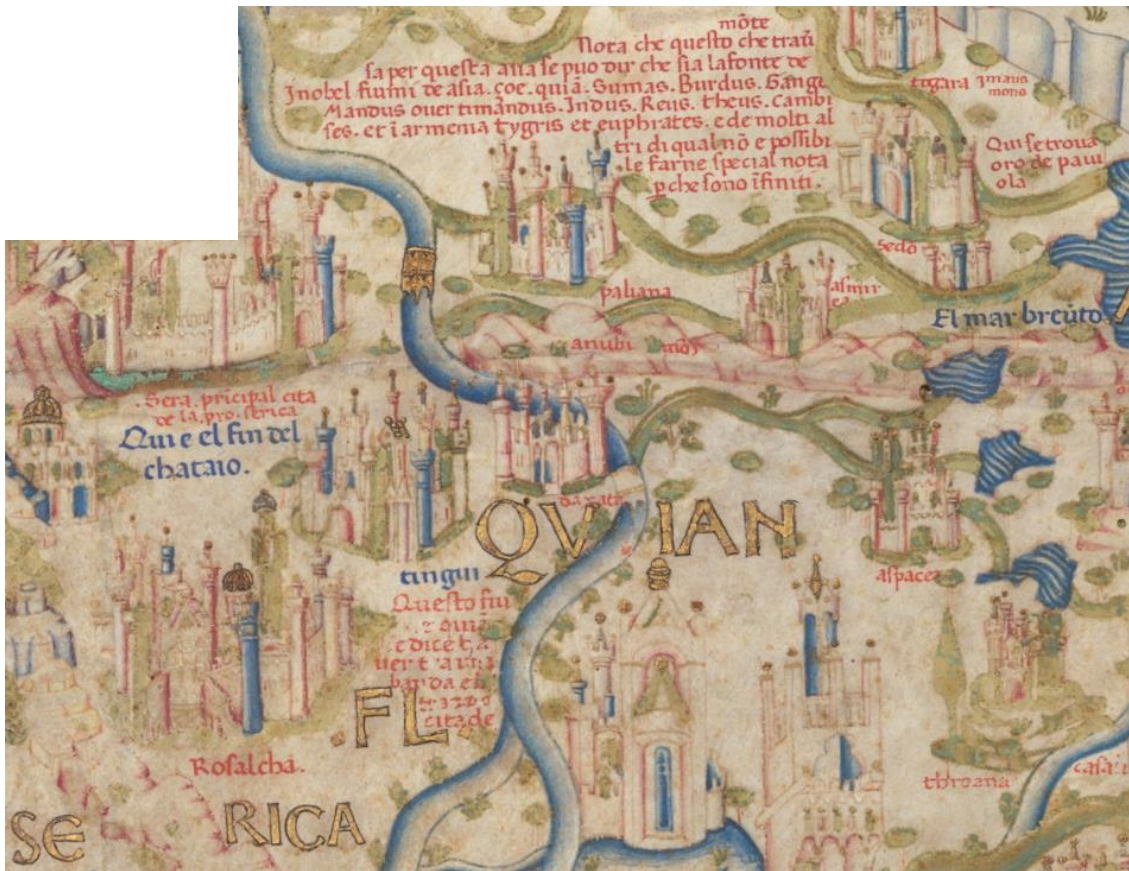 mōte
Nota che questo che traū
sa per questa asia se puo dir che sia la fonte de
I nobel fiumi de asia. çoe. quiā. Sumas. Burdus. Gange
Mandus over timāndus. Indus. Reus. theus. Cambi
ses. et ī armenia tygris et euphrates. e de molti al
tri di qual nō e possibi
le farne special nota
pche sono īfiniti.
togara
imaus
mons
Qui se trova
oro de paiu
ola
sedō
asmir
ea
paliana
El mar breūto.
anubi
Sera. pricipal cita
de la. pro. serica
Qui e el fin del
chataio.
QV IAN
tingui
aspacea
Questo fiu
e quiā
e dice
citade
FL.
Rosalcha.
throana
casa
SE RICA